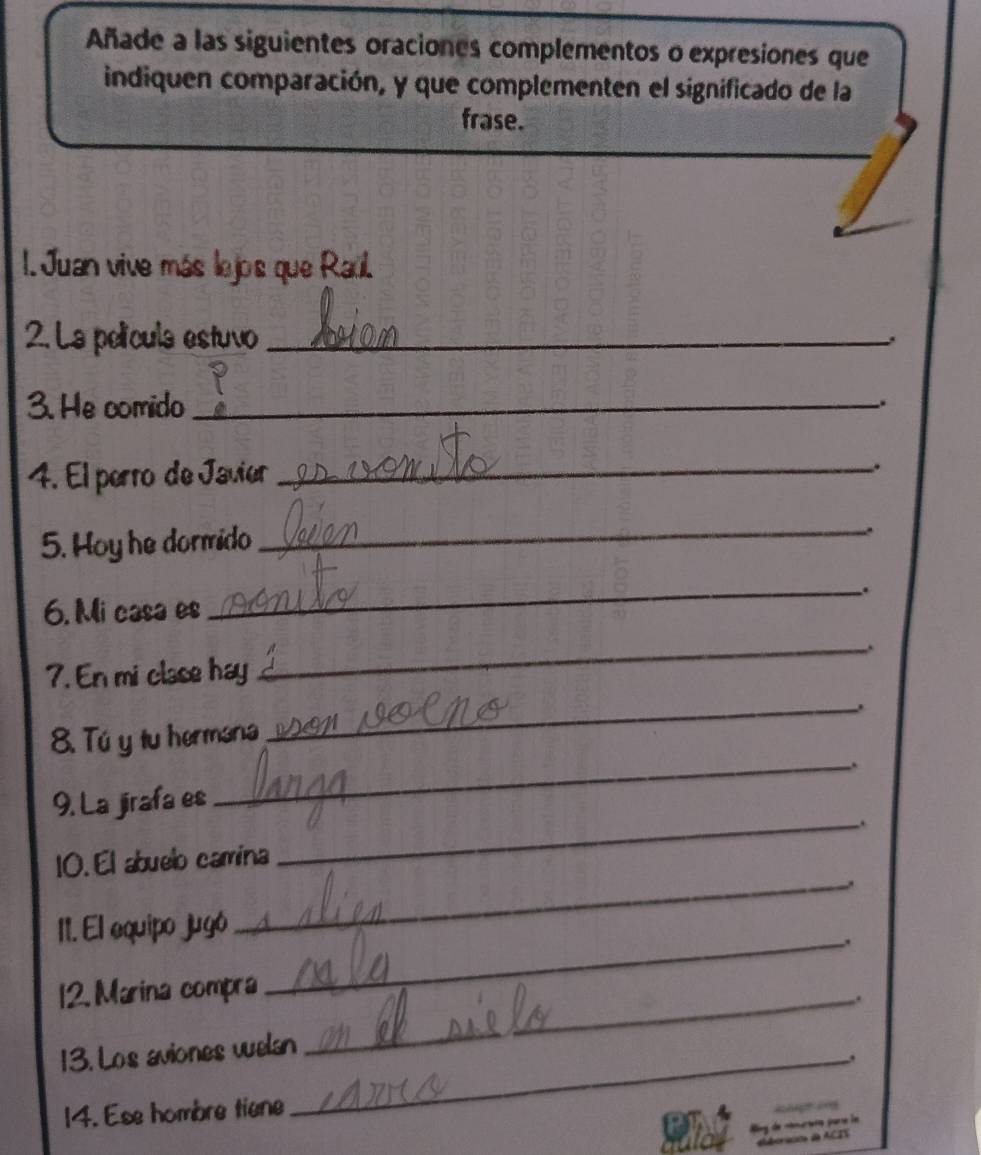 Añade a las siguientes oraciones complementos o expresiones que
indiquen comparación, y que complementen el significado de la
frase.
1. Juan vive más lejos que Raúl.
2. La película estuvo beion.
3. He comido
4. El perro de Javier es vonito.
5. Hoy he dormido beien.
6. Mi casa es vonito.
7. En mi clase hay
8. Tú y tu hermana eson voeno.
9. La jirafa es langa.
10. El abuelo camina
11. El equipo jugó a alien.
12. Marina compra cala.
13. Los aviones vuelan en el sielo.
14. Ese hombre tiene carro.
aula
Blog de recursos para la
elaboración de ACIS